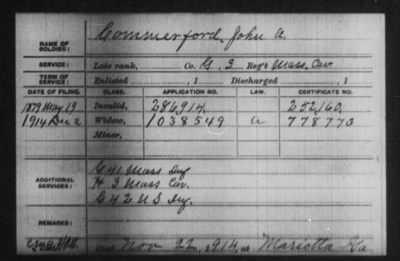 NAME OF SOLDIER: Commerford, John A.
SERVICE: Late rank, Co. G. 3 Reg't Mass. Cav.
TERM OF SERVICE: Enlisted , 1 Discharged , 1
DATE OF FILING. CLASS. APPLICATION NO. LAW. CERTIFICATE NO.
1879 May 19 Invalid, 286,914. 252,160.
1914 Dec 2 Widow, 1038549 a 778773
Minor,
ADDITIONAL SERVICES: G 41 Mass Inf
H 3 Mass Cav.
G 42 U S Inf.
REMARKS:
Nov 22, 1914, at Marietta Ga